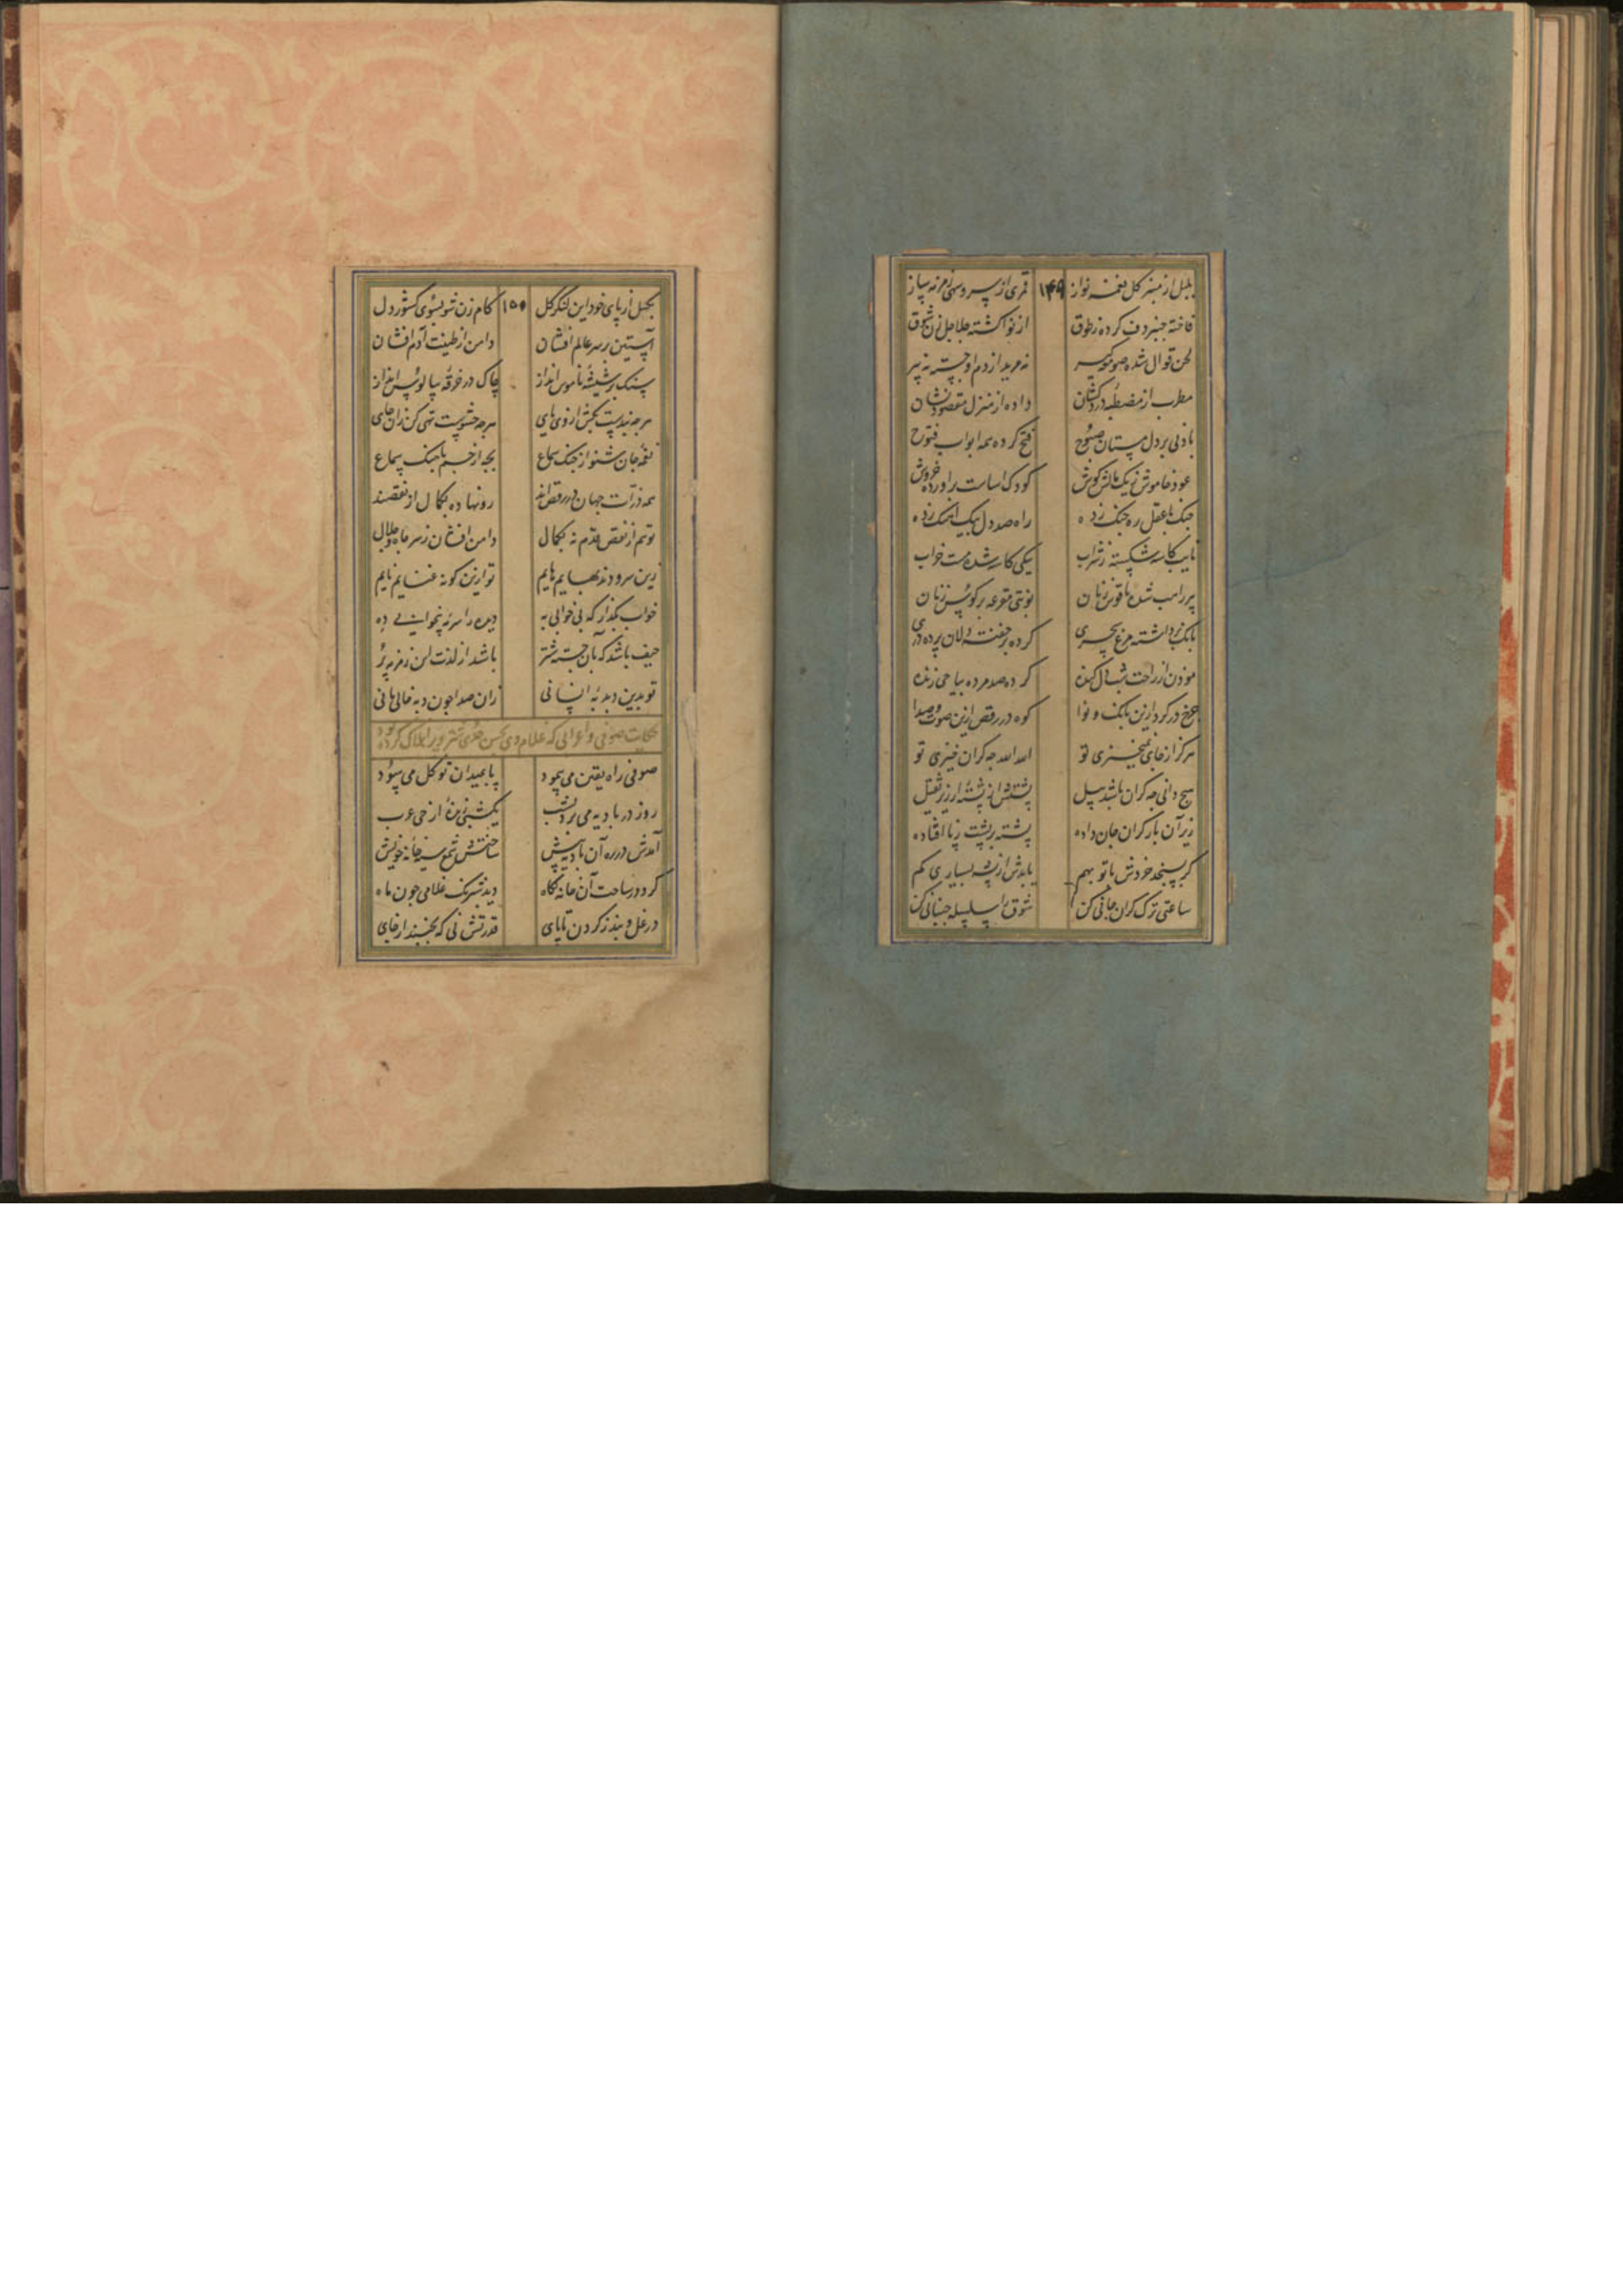 بلبل از منبر کل نغمه نواز ۱۴۹ قمری از سرو سهی زمزمه ساز
فاخته چنبر دف کرده ز طوق از نوا کشته جلاجل زن شوق
لحن قوال شده صومعه گیر نه مرید از دم او جسته نه پیر
مطرب از مصطبه دردکشان داده از منزل مقصود نشان
بادنی بر دل مستان صبوح فتح کرده همه ابواب فتوح
عود خاموش ز یک مالش کوش کودک اساست براورده خروش
چنک با عقل ره جنک زده راه صد دل بیک اهنک زده
تایب کاسه شکسته ز شراب بیکی کاسه شده مست خراب
پیر راهب شده ناقوس زنان نوبتی مقرعه بر کوس زنان
بانک برداشته مرغ سحری کرده بر خفته دلان پرده دری
موذن از راحت شب دل کنده کرده صد مرده بیا حی زنده
چرخ در کردش ازین بانک و نوا کوه در رقص ازین صوت و صدا
هرکز از جای نمیخیزی تو الله الله چه کران خیزی تو
هیچ دانی چه کران باشد پیل پشتش از پشته ارزیز ثقیل
زیر آن بار کران جان داده پشته بر پشت ز پا افتاده
کر بسنجد خردش با تو بهم یابدش از پشه بسیاری کم
ساعتی ترک کران جانی کن شوق را سلسله جنبانی کن
بکسل از پای خود این لنکر کل ۱۵۰ کام زن شو بسوی کشور دل
آستین بر سر عالم افشان دامن از طینت آدم افشان
سنک بر شیشه ناموس انداز چاک در خرقه سالوس انداز
هرچه بندیست بکش از وی پای هرچه حشویست تهی کن زان جای
نغمه جان شنو از چنک سماع بجه از جسم باهنک سماع
همه ذرات جهان در رقص اند رو نهاده بکمال از نقصند
تو هم از نقص قدم نه بکمال دامن افشان ز سر جاه و جلال
زین سرودند بهایم هایم تو ازین کونه غنایم نایم
خواب بکذار که بی خوابی به دیده را سرمه بیخوابی ده
حیف باشد که بآن جسته شتر باشد از لذت این زمزمه پر
تو بدین دبدبه انسانی زان صدا چون دبه خالی مانی
حکایت صوفی و اعرابی که غلام وی بحسن حدی شتر ویرا هلاک کرده بود
صوفی راه یقین می پیمود پا بمیدان توکل می سود
روز در بادیه می برد بشب یکشبی زنده از حی عرب
آمدش در ره آن بادیه پیش ساختش شمع سیه خانه خویش
کرد در ساحت آن خانه نکاه دید شبرنک غلامی چون ماه
در غل و بند ز کردن تا پای قدرتش نی که بجنبد از جای